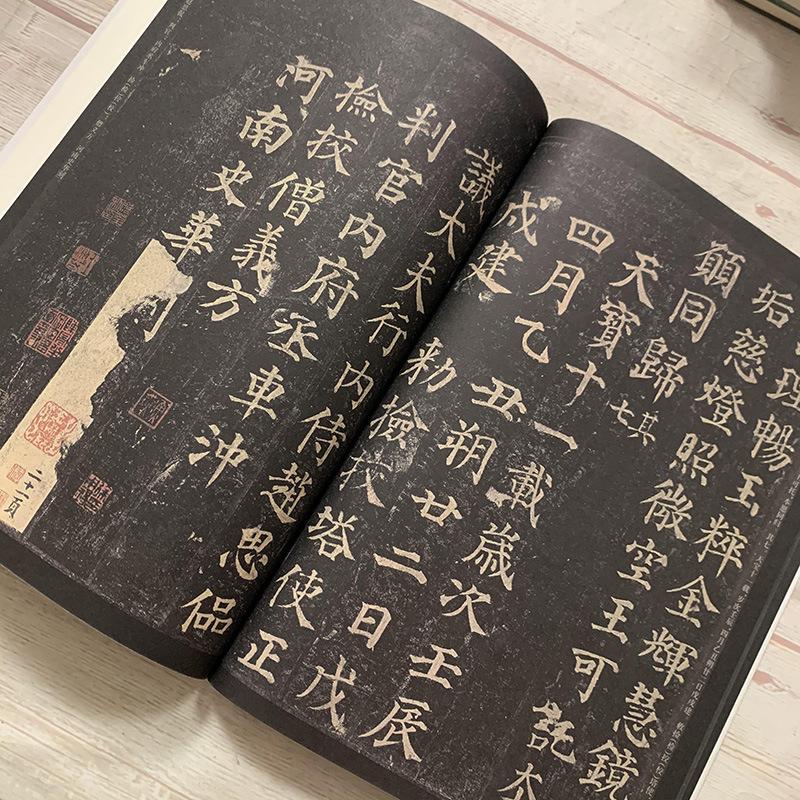 理暢玉粹金輝慧鏡
垢慈燈照微空王可託夲
願同歸其七
天寶十一載歲次壬辰
四月乙丑朔廿二日戊
戌建勑檢校塔使正
議大夫行內侍趙思偘
判官內府丞車沖
檢校僧義方
河南史華刻
二十一頁